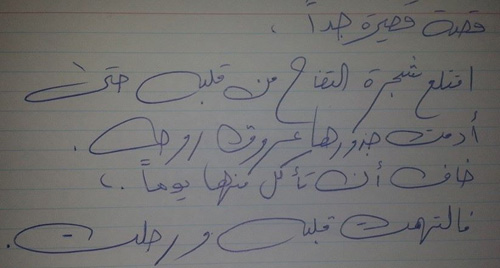 قصة قصيرة جداً .
اقتلع شجرة التفاح من قلبه حتى
أدمت جذورها عروق روحه .
خاف أن تأكل منها يوماً ..
فالتهمت قلبه ورحلت .